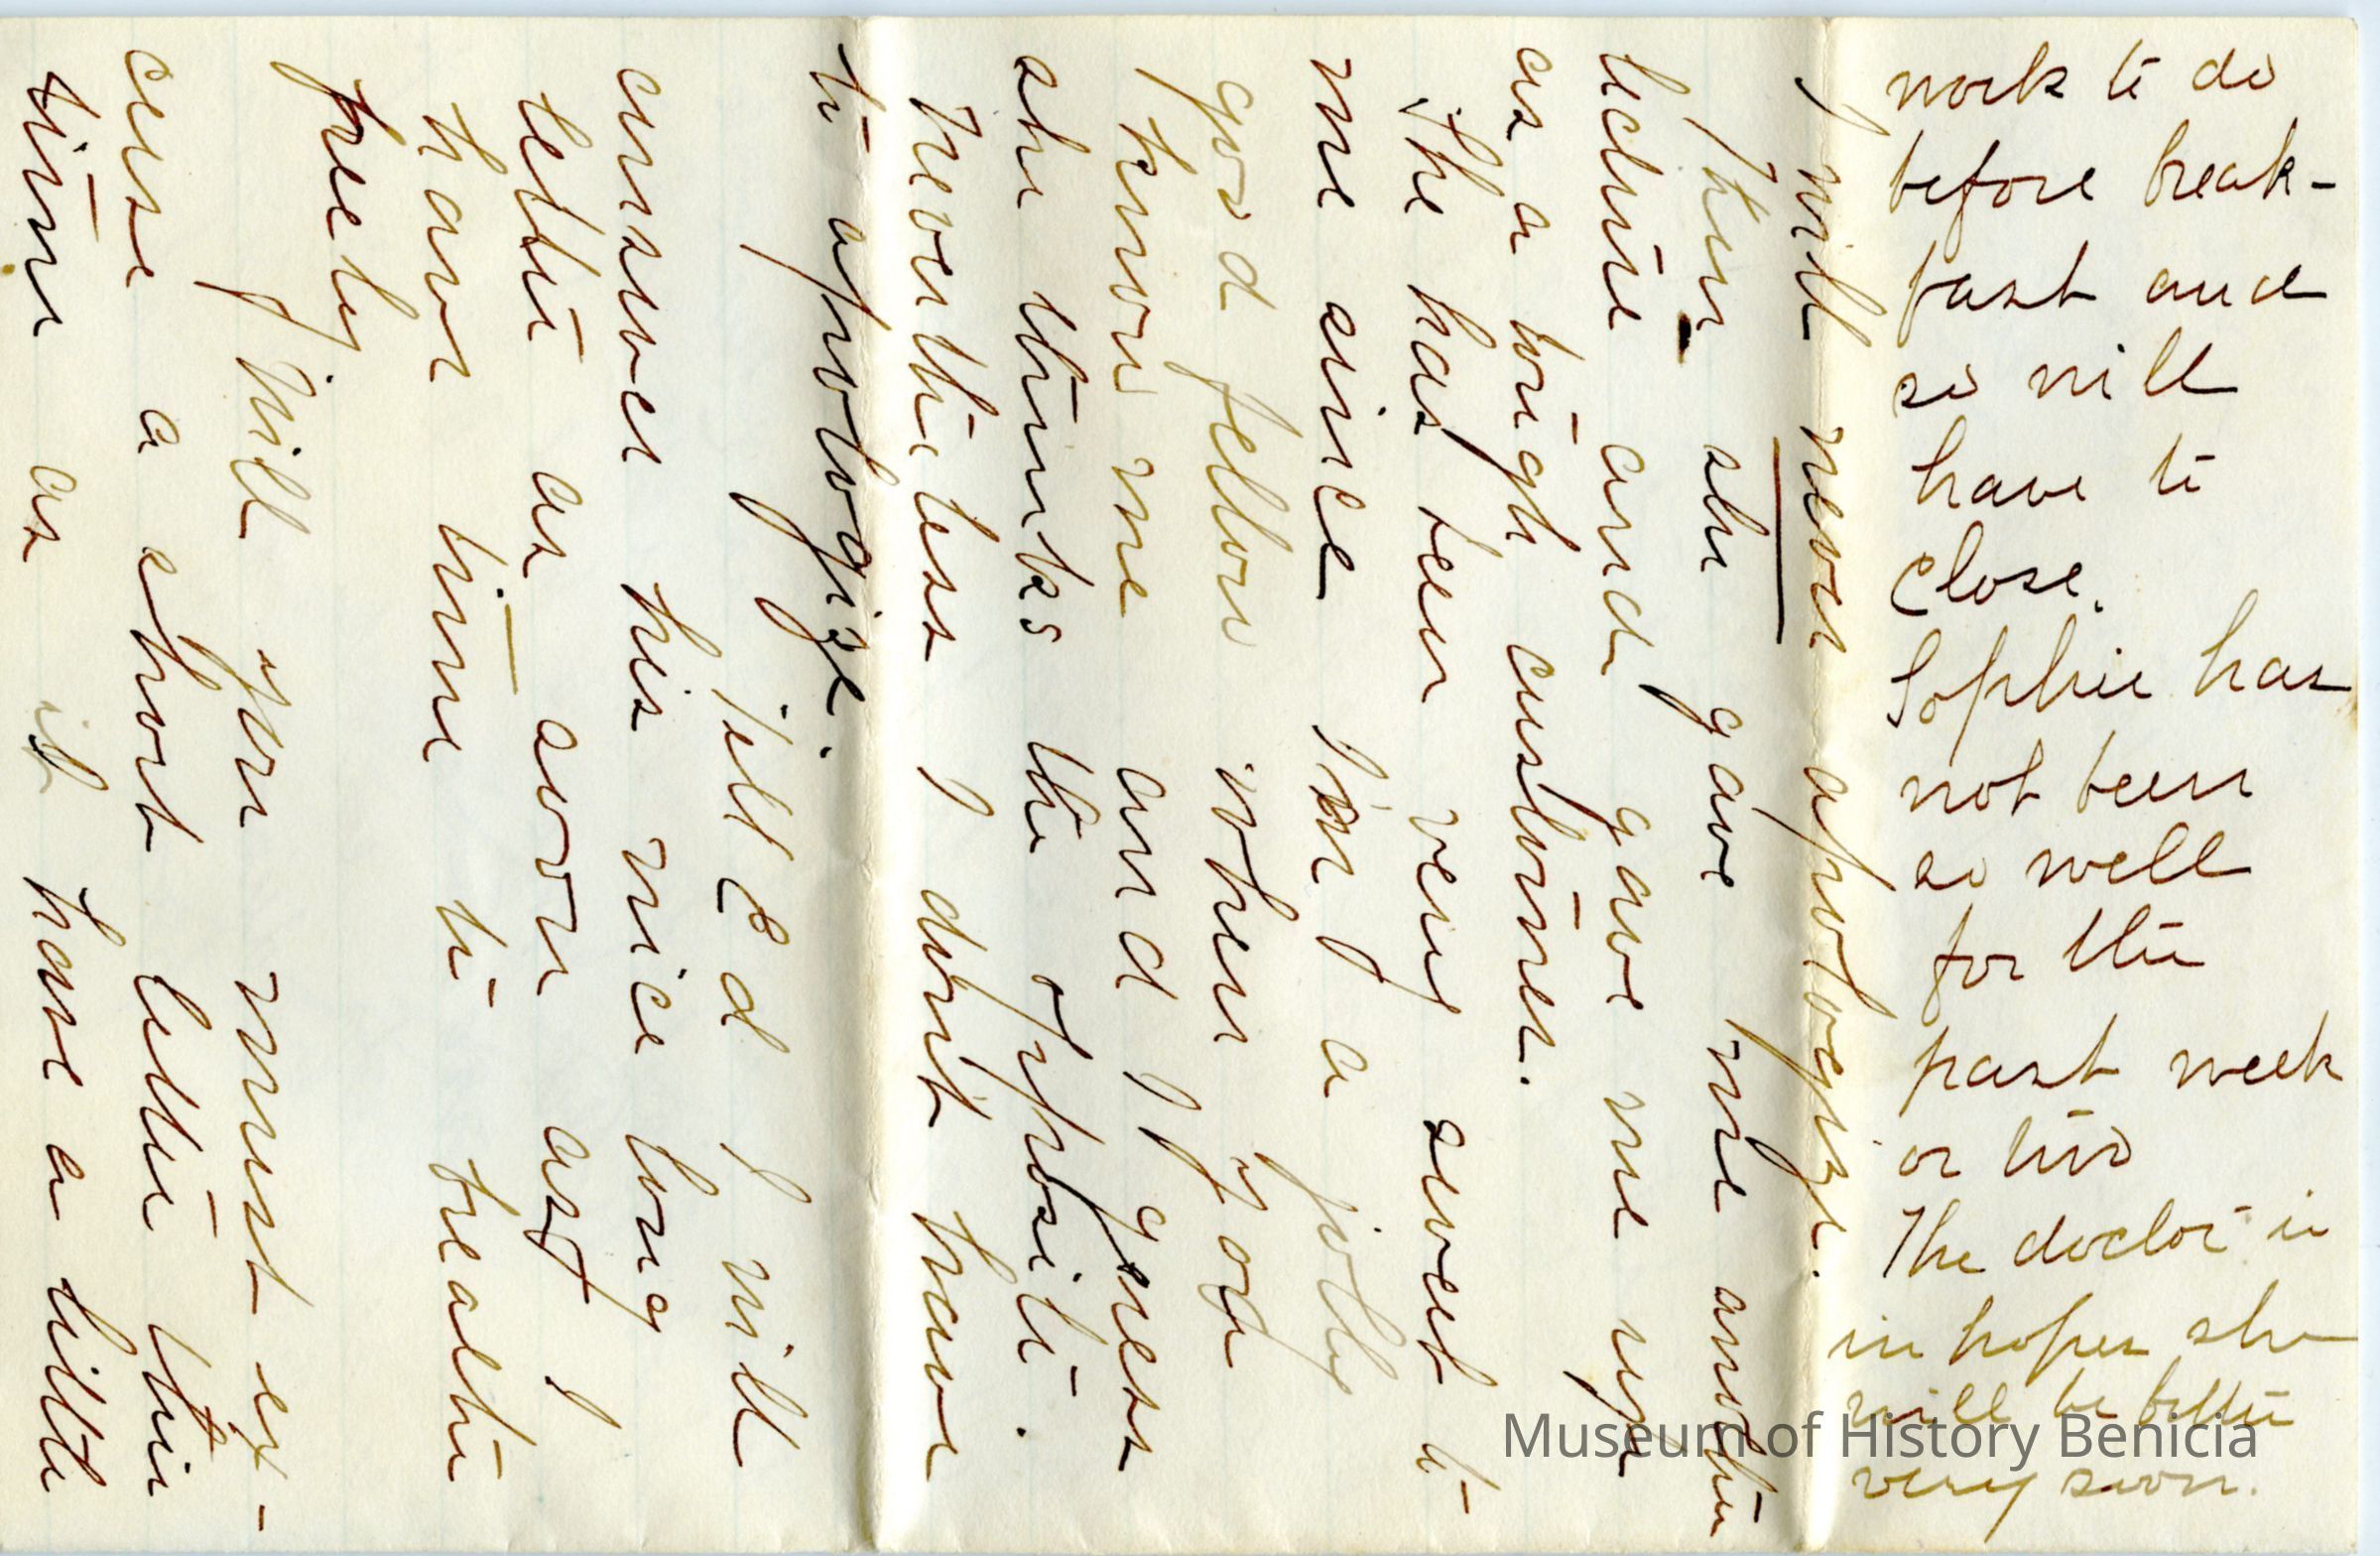 I will never apologize.
Then she gave me another
lecture and gave me up
as a tough customer.
She has been very sweet to
me since I'm a jolly
good fellow when you
know me and I guess
she thinks the opposite.
Nevertheless I don't have
to apologize.
Tell Ed I will
answer his nice long
letter as soon as I
have time to breathe
freely.
Will you must ex-
cuse a short letter this
time as it have a little
work to do
before break-
fast and
so will
have to
close.
Sophie has
not been
so well
for the
past week
or two
The doctor is
in hopes she
will be better
very soon.
Museum of History Benicia